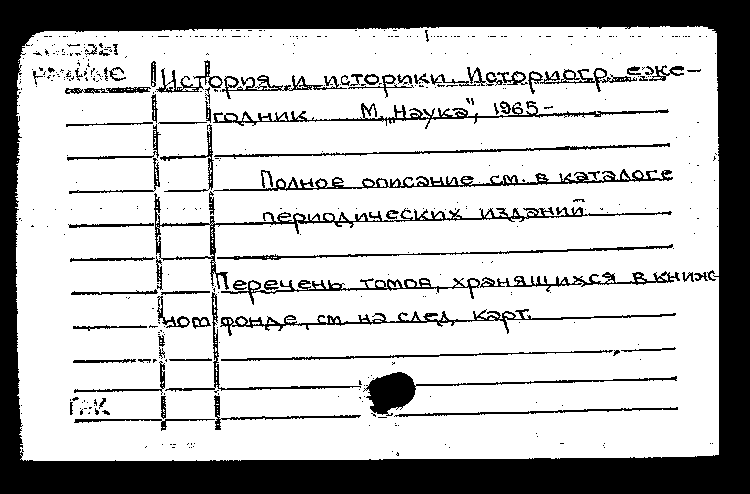 разные
История и историки. Историогр. еже-
годник. М. „Наука", 1965-
Полное описание см. в каталоге
периодических изданий.
Перечень томов, хранящихся в книж-
ном фонде, см. на след. карт.